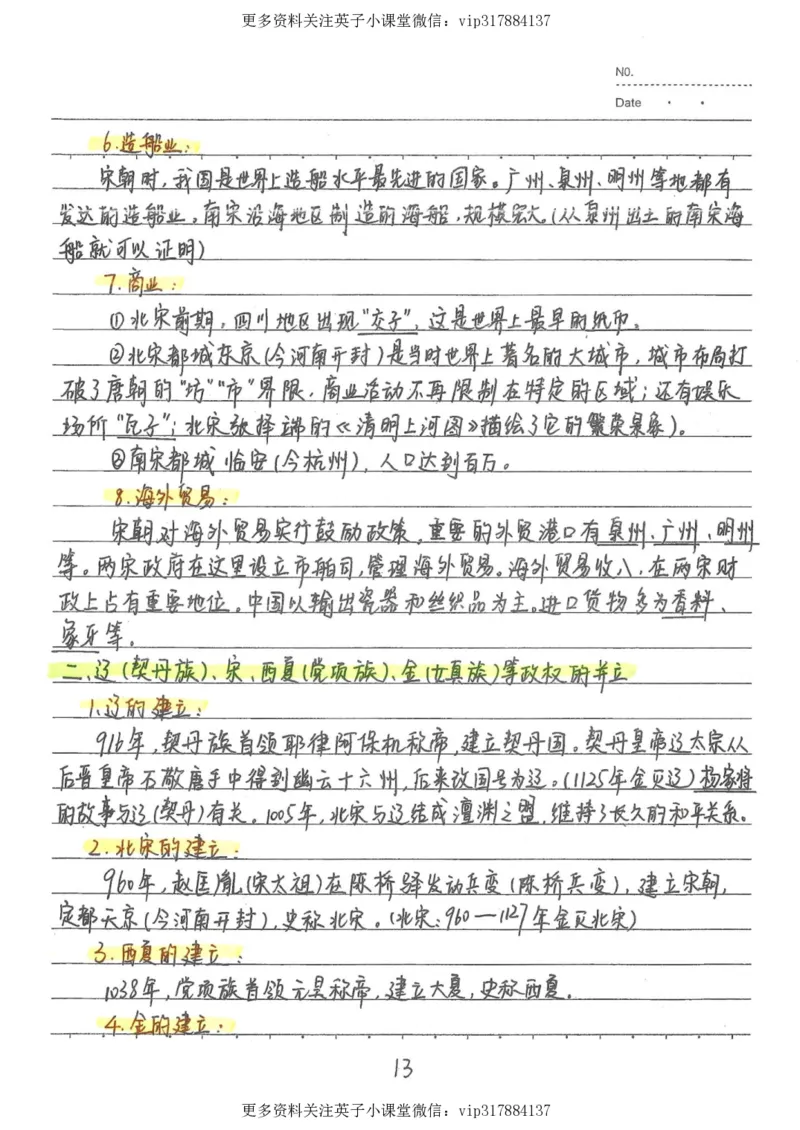 更多资料关注英子小课堂微信：vip317884137
NO.
Date
6.造船业：
宋朝时,我国是世界上造船水平最先进的国家。广州、泉州、明州等地都有
发达的造船业。南宋沿海地区制造的海船,规模宏大。(从泉州出土的南宋海
船就可以证明)
7.商业：
①北宋前期,四川地区出现"交子",这是世界上最早的纸币。
②北宋都城东京(今河南开封)是当时世界上著名的大城市,城市布局打
破了唐朝的"坊""市"界限,商业活动不再限制在特定的区域；还有娱乐
场所"瓦子"；北宋张择端的《清明上河图》描绘了它的繁荣景象)。
③南宋都城临安(今杭州),人口达到百万。
8.海外贸易：
宋朝对海外贸易实行鼓励政策,重要的外贸港口有泉州、广州、明州
等。两宋政府在这里设立市舶司,管理海外贸易。海外贸易收入,在两宋财
政上占有重要地位。中国以输出瓷器和丝织品为主。进口货物多为香料、
象牙等。
二、辽(契丹族)、宋、西夏(党项族)、金(女真族)等政权的并立
1.辽的建立：
916年,契丹族首领耶律阿保机称帝,建立契丹国。契丹皇帝辽太宗从
后晋皇帝石敬唐手中得到幽云十六州,后来改国号为辽。(1125年金灭辽)杨家将
的故事与辽(契丹)有关。1005年,北宋与辽结成澶渊之盟,维持了长久的和平关系。
2.北宋的建立：
960年,赵匡胤(宋太祖)在陈桥驿发动兵变(陈桥兵变),建立宋朝,
定都东京(今河南开封),史称北宋。(北宋:960—1127年金灭北宋)
3.西夏的建立：
1038年,党项族首领元昊称帝,建立大夏,史称西夏。
4.金的建立：
13
更多资料关注英子小课堂微信：vip317884137